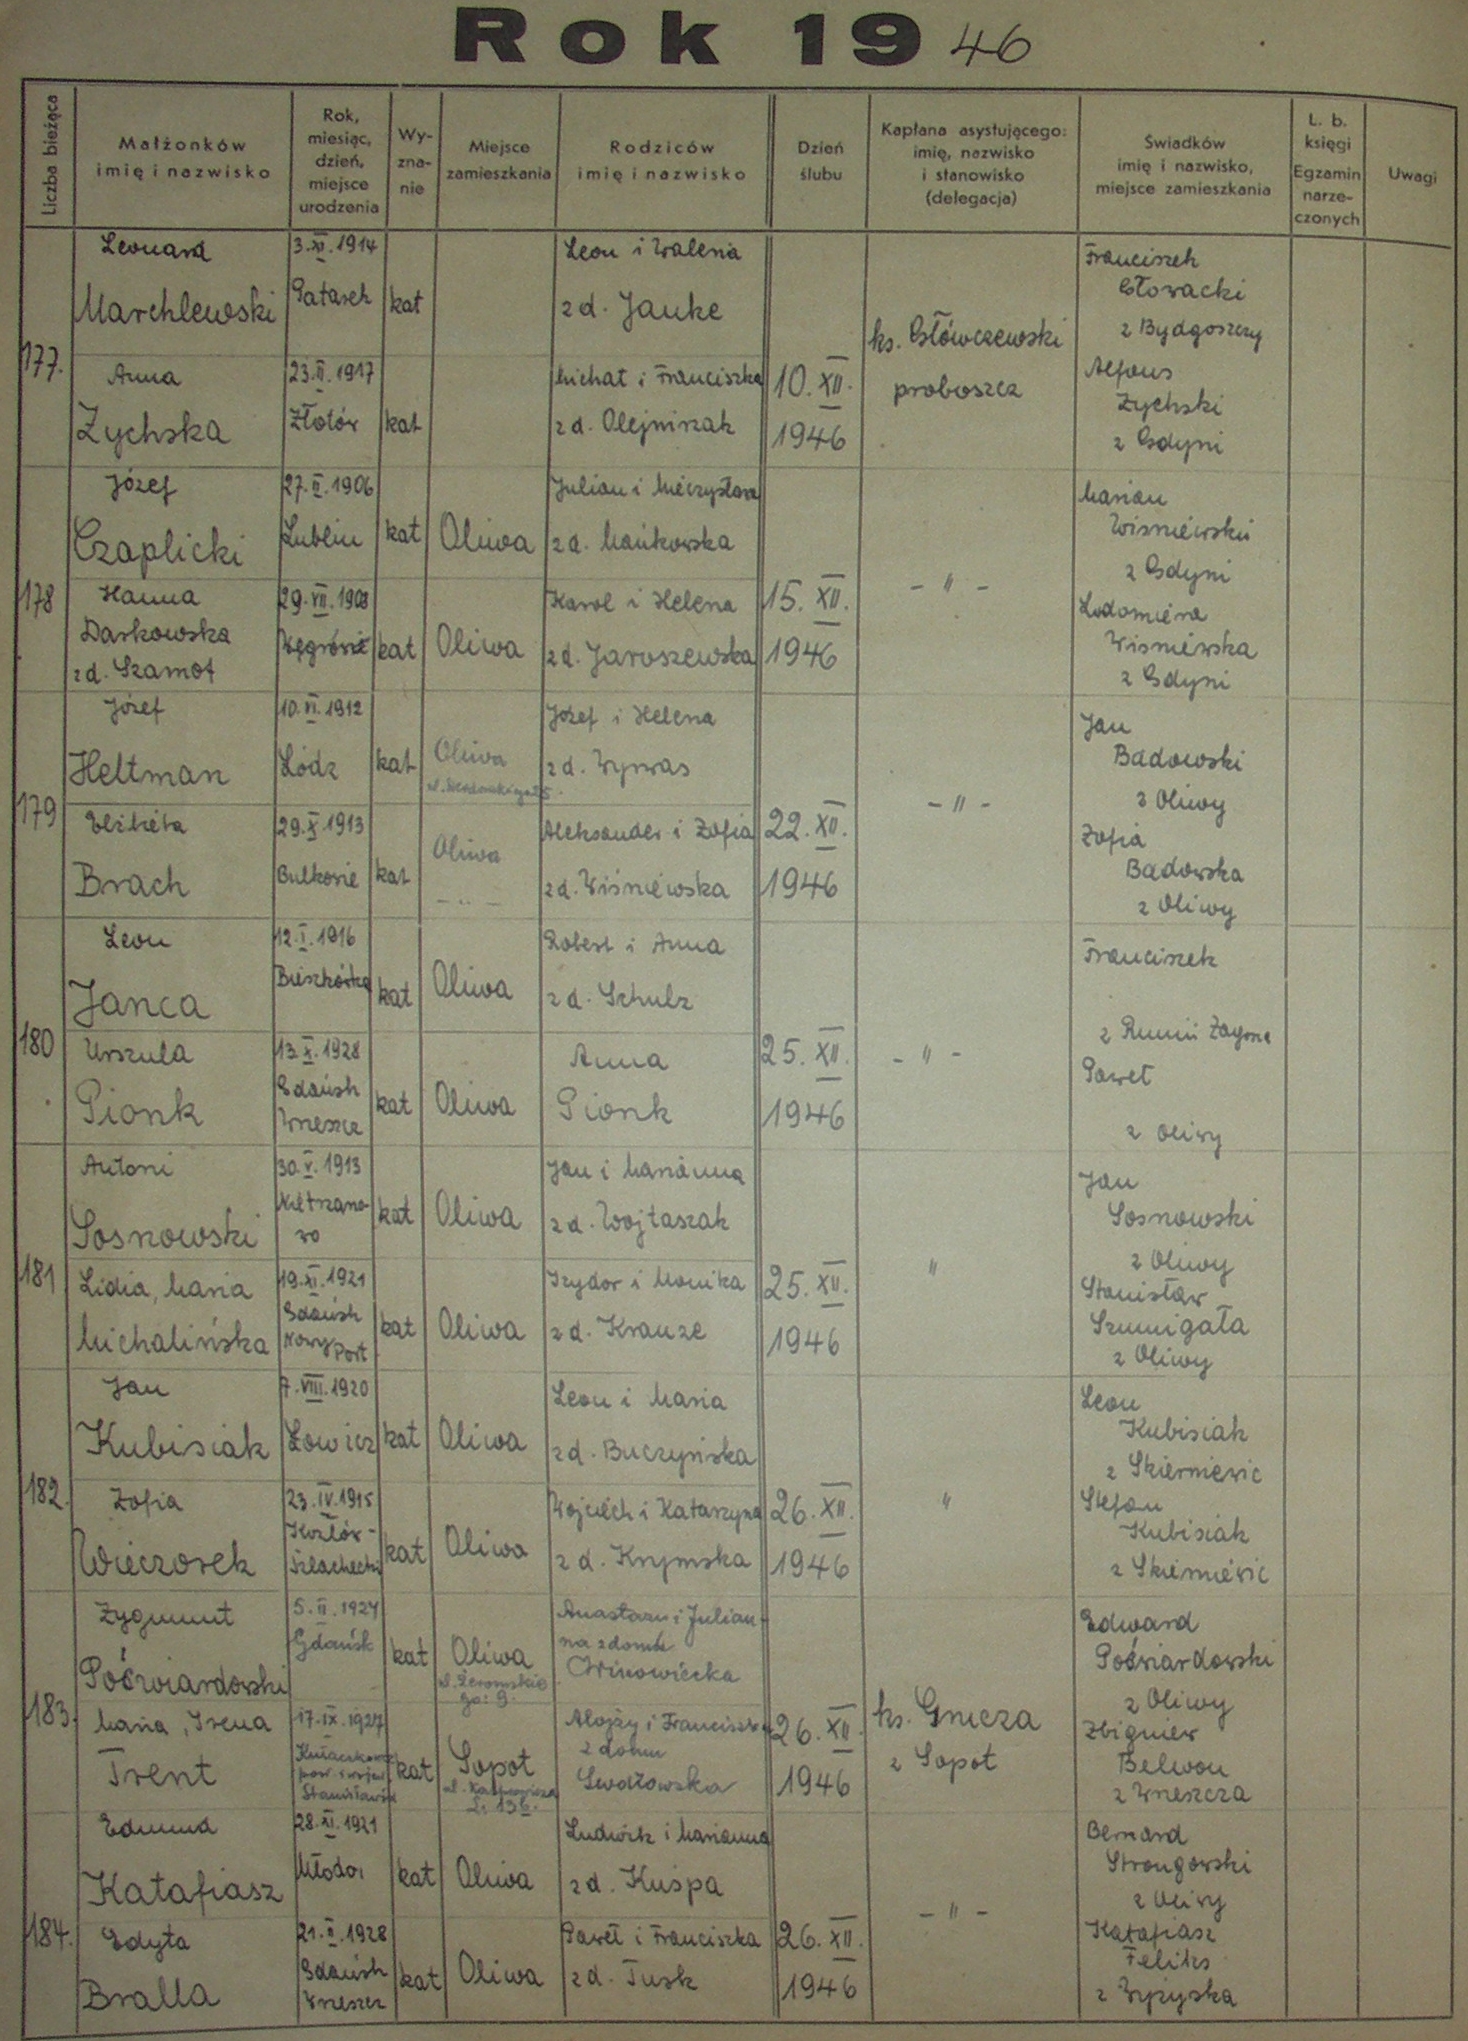 Rok 1946
Liczba bieżąca
Małżonków
imię i nazwisko
Rok,
miesiąc,
dzień,
miejsce
urodzenia
Wy-
zna-
nie
Miejsce
zamieszkania
Rodziców
imię i nazwisko
Dzień
ślubu
Kapłana asystującego:
imię, nazwisko
i stanowisko
(delegacja)
Świadków
imię i nazwisko,
miejsce zamieszkania
L. b.
księgi
Egzamin
narze-
czonych
Uwagi
177.
Leonard
Marchlewski
3.XI.1914
kat
Leon i Waleria
z d. Janke
Anna
Zychska
23.II.1917
Złotów
kat
Michał i Franciszka
z d. Olejniczak
10.XII.
1946
ks. Główczewski
proboszcz
Franciszek
Głowacki
z Bydgoszczy
Alfons
Zychski
z Gdyni
178
Józef
Czaplicki
27.II.1906
Lublin
kat
Oliwa
Julian i Mieczysława
z d. Mańkowska
Hanna
Daskowska
z d. Szamot
29.VII.1908
kat
Oliwa
Karol i Helena
z d. Jaroszewska
15.XII.
1946
- " -
Marian
Wiśniewski
z Gdyni
Ludomiera
Wiśniewska
z Gdyni
179
Józef
Heltman
10.VI.1912
Łódz
kat
Oliwa
Józef i Helena
z d. Wywas
Elżbieta
Brach
29.X.1913
Bulkowie
kat
Oliwa
- " -
Aleksander i Zofia
z d. Wiśniewska
22.XII.
1946
- " -
Jan
Badowski
z Oliwy
Zofia
Badowska
z Oliwy
180
Leon
Janca
12.I.1916
Bieszkówka
kat
Oliwa
Robert i Anna
z d. Schulz
Urszula
Pionk
13.X.1928
Gdańsk
Wrzeszcz
kat
Oliwa
Anna
Pionk
25.XII.
1946
- " -
Franciszek
z Rumii Zagórza
Paweł
z Oliwy
181
Antoni
Sosnowski
30.V.1913
kat
Oliwa
Jan i Marianna
z d. Wojtaszak
Lidia, Maria
Michalińska
19.XI.1921
Gdańsk
Nowy Port
kat
Oliwa
Izydor i Monika
z d. Krauze
25.XII.
1946
"
Jan
Sosnowski
z Oliwy
Stanisław
Szmigała
z Oliwy
182.
Jan
Kubisiak
7.VIII.1920
Łowicz
kat
Oliwa
Leon i Maria
z d. Buczyńska
Zofia
Wieczorek
23.IV.1915
Kozłów-
Szlachecki
kat
Oliwa
Wojciech i Katarzyna
z d. Krymska
26.XII.
1946
"
Leon
Kubisiak
z Skierniewic
Stefan
Kubisiak
z Skierniewic
183.
Zygmunt
Poćwiardowski
5.II.1924
Gdańsk
kat
Oliwa
ul. Żeromskie
go: 9.
Anastazy i Julian-
na z domu
Maria, Irena
Trent
17.IX.1927
kat
Sopot
Alojzy i Franciszka
z domu
26.XII.
1946
ks. Gnieza
z Sopot
Edward
Poćwiardowski
z Oliwy
Zbigniew
Belwon
z Wrzeszcza
184.
Edmund
Katafiasz
28.XI.1921
kat
Oliwa
Ludwik i Marianna
z d. Kuśpa
Edyta
Bralla
21.II.1928
Gdańsk
Wrzeszcz
kat
Oliwa
Paweł i Franciszka
z d. Tusk
26.XII.
1946
- " -
Bernard
Strongowski
z Oliwy
Katafiasz
Feliks
z Wyżyska